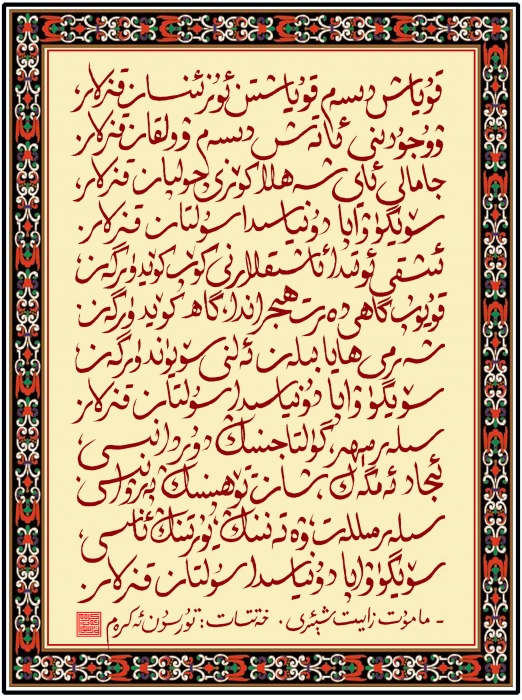 قۇياش دېسەم قۇياشتىن ئوت ئىنسان قىزلار،
ۋۇجۇدىنى ئاتەش دېسەم ۋولقان قىزلار.
جامالى ئاي، شەھلا كۆزى چولپان قىزلار،
سۆيگۈ ۋاپا دۇنياسىدا سۇلتان قىزلار.
ئىشقى ئوتىدا ئاشىقلارنى كۆپ كۆيدۈرگەن،
قويۇپ گاھى دەرت ھىجراندا، گاھ كۆيدۈرگەن.
شەرمى ھايا بىلەن ئەلنى سۆيۈندۈرگەن،
سۆيگۈ ۋاپا دۇنياسىدا سۇلتان قىزلار.
سىلەر مېھىر، گۈلتاجىنىڭ دۇردانىسى،
ئىجاد ئەمگەك، شان تۆھپىنىڭ پەرۋانىسى.
سىلەر مىللەت، ۋەتەننىڭ، يۇرتنىڭ ئانىسى،
سۆيگۈ ۋاپا دۇنياسىدا سۇلتان قىزلار.
- مامۇت زايىت شېئىرى. خەتتات: تۇرسۇن ئەكرەم